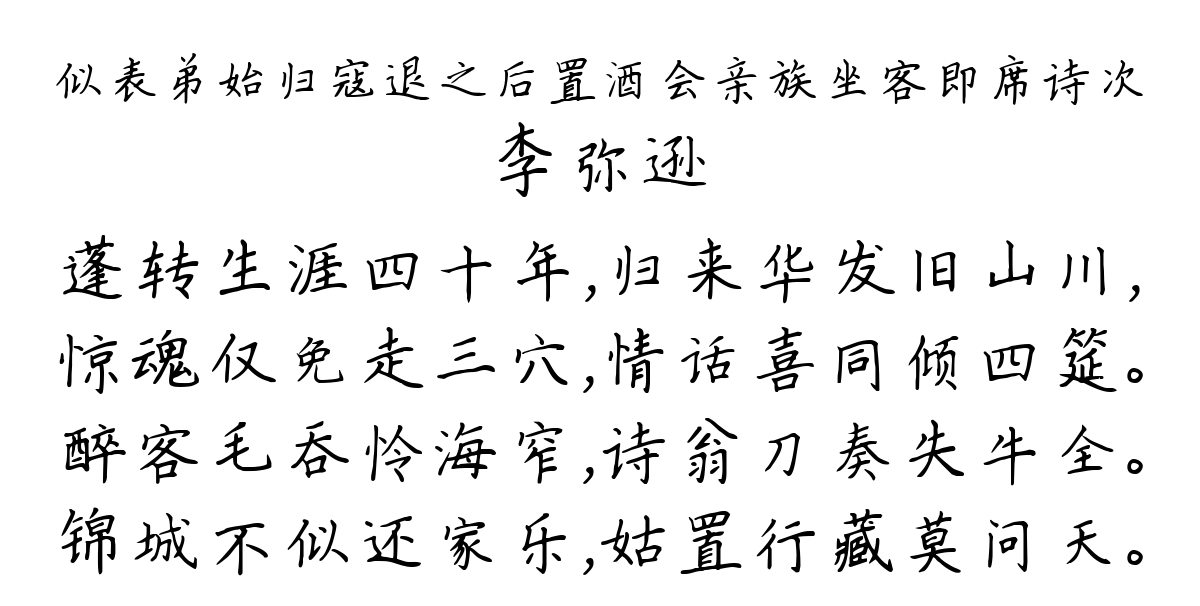 似表弟始归寇退之后置酒会亲族坐客即席诗次
李弥逊
蓬转生涯四十年,归来华发旧山川,
惊魂仅免走三穴,情话喜同倾四筵。
醉客毛吞怜海窄,诗翁刀奏失牛全。
锦城不似还家乐,姑置行藏莫问天。